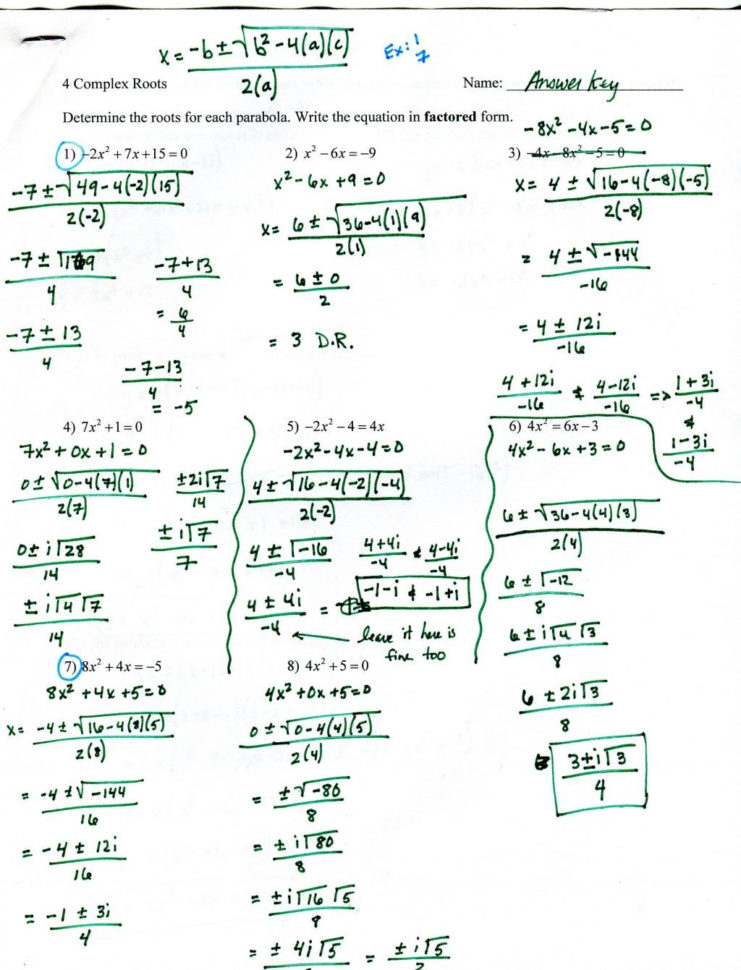 x = -b ± √b² - 4(a)(c) / 2(a)
Ex: 1/7
4 Complex Roots
Name: Answer Key
Determine the roots for each parabola. Write the equation in factored form.
1) -2x² + 7x + 15 = 0
-7 ± √49 - 4(-2)(15) / 2(-2)
-7 ± √169 / 4
-7 + 13 / 4
= 6/4
-7 ± 13 / 4
-7 - 13 / 4
= -5
2) x² - 6x = -9
x² - 6x + 9 = 0
x = 6 ± √36 - 4(1)(9) / 2(1)
= 6 ± 0 / 2
= 3 D.R.
-8x² - 4x - 5 = 0
3) -4x - 8x² - 5 = 0
x = 4 ± √16 - 4(-8)(-5) / 2(-8)
= 4 ± √-144 / -16
= 4 ± 12i / -16
4 + 12i / -16 & 4 - 12i / -16 => 1 + 3i / -4
& 1 - 3i / -4
4) 7x² + 1 = 0
7x² + 0x + 1 = 0
0 ± √0 - 4(7)(1) / 2(7)
±2i√7 / 14
0 ± i√28 / 14
± i√7 / 7
± i√4 √7 / 14
5) -2x² - 4 = 4x
-2x² - 4x - 4 = 0
4 ± √16 - 4(-2)(-4) / 2(-2)
4 ± √-16 / -4
4 + 4i / -4 & 4 - 4i / -4
4 ± 4i / -4 = -1 - i & -1 + i
leave it here is
fine too
6) 4x² = 6x - 3
4x² - 6x + 3 = 0
6 ± √36 - 4(4)(3) / 2(4)
6 ± √-12 / 8
6 ± i√4 √3 / 8
6 ± 2i√3 / 8
3 ± i√3 / 4
7) 8x² + 4x = -5
8x² + 4x + 5 = 0
x = -4 ± √16 - 4(8)(5) / 2(8)
= -4 ± √-144 / 16
= -4 ± 12i / 16
= -1 ± 3i / 4
8) 4x² + 5 = 0
4x² + 0x + 5 = 0
0 ± √0 - 4(4)(5) / 2(4)
= ± √-80 / 8
= ± i√80 / 8
= ± i√16 √5 / 8
= ± 4i√5 = ± i√5 / 2